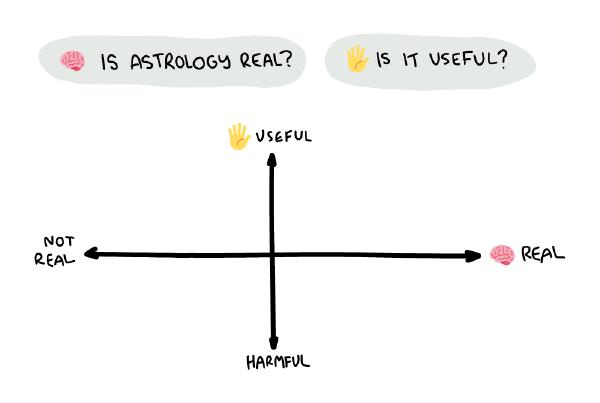 IS ASTROLOGY REAL?
IS IT USEFUL?
USEFUL
NOT
REAL
REAL
HARMFUL